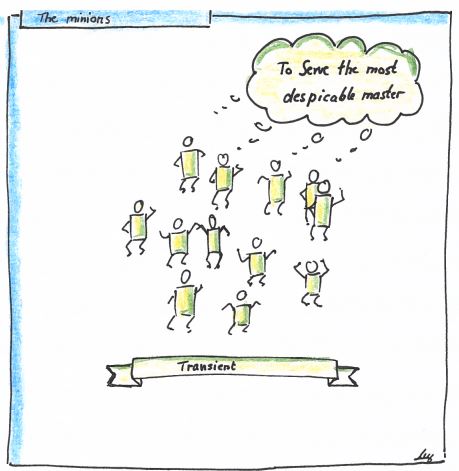 The minions
To Serve the most
despicable master
Transient